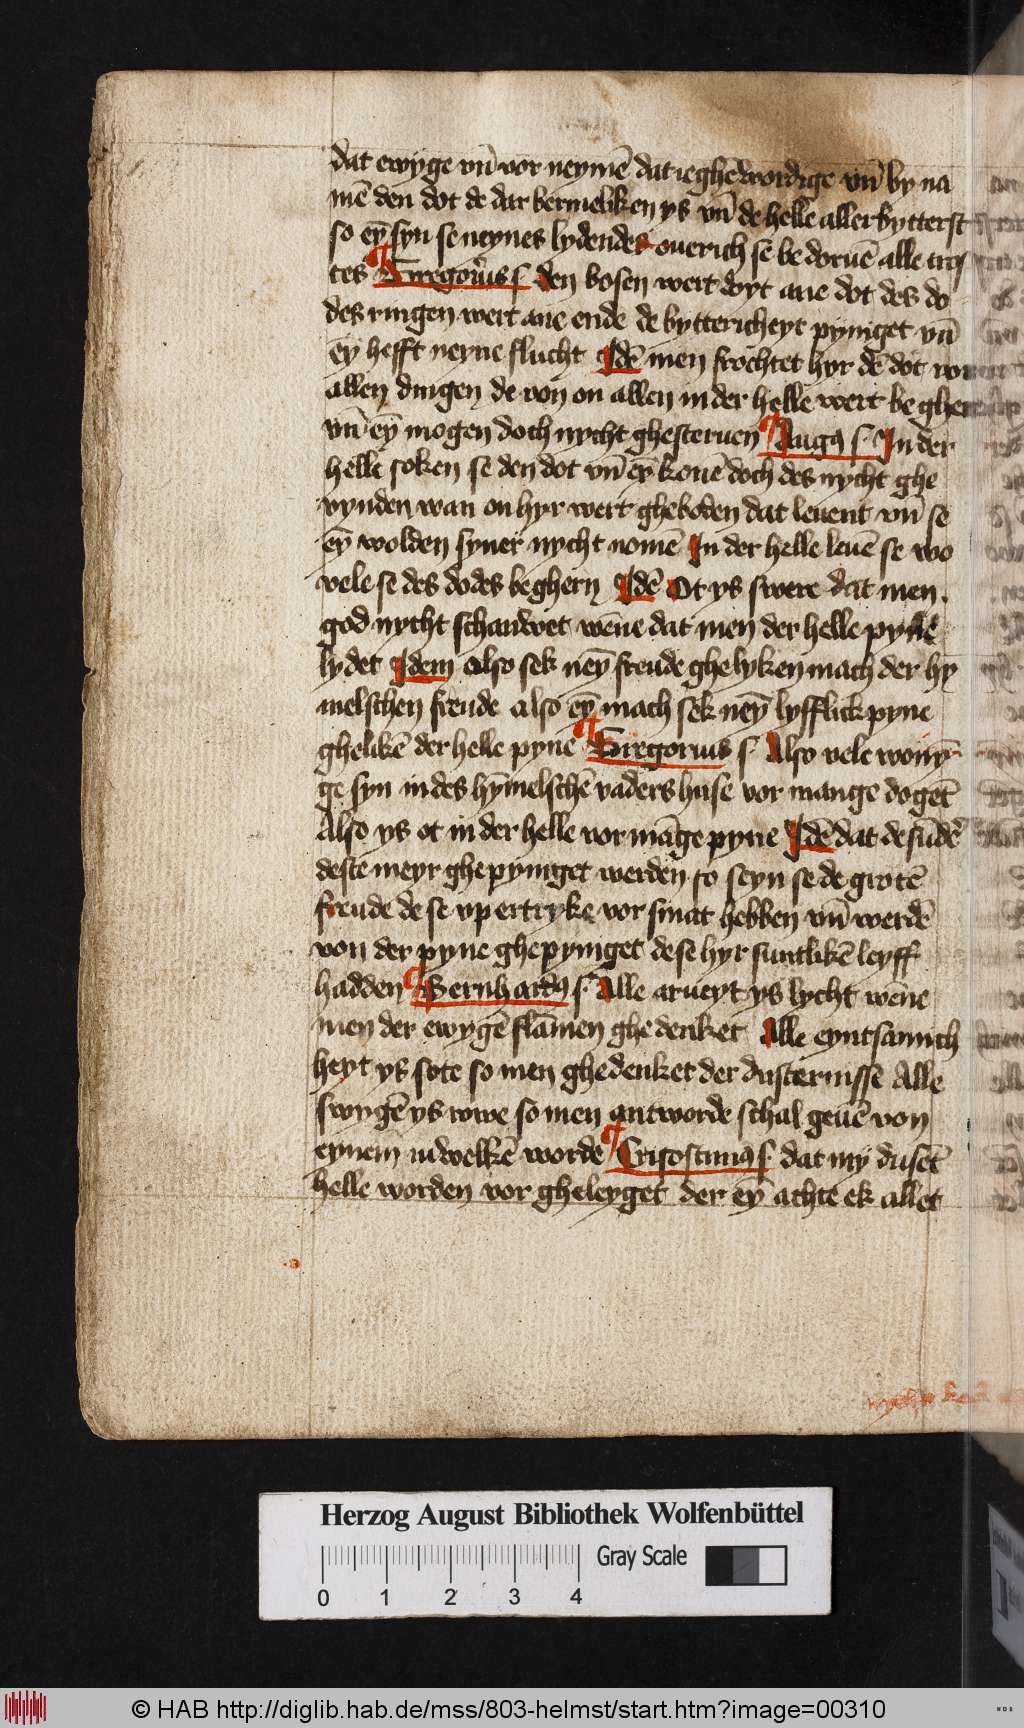 dat ewyge vn̄ vor neymē dat ieghēwordige vn̄ by na
mē den dot de dar bermeliken ys vn̄ de helle aller bytterst
so eȳ syn se neynes lydendes ouerich se be doruē alle tros
tes Gregorius ſ den bosen wert doyt ane dot des do
des ringen wert ane ende de byttericheyt pyniget vn̄
ey hefft neyne flucht Idē men frochtet hyr dē dot vor
allen dingen de von on allen in der helle wert be ghert
vn̄ eȳ mogen doch nycht ghesteruen Augꝯ ſ In der
helle soken se den dot vn̄ eȳ konē doch des nycht ghe
vynden wan on hyr wert gheboden dat leuent vn̄ se
eȳ wolden syner nycht nomē In der helle leuē se wo
vele se des dodes beghern Idē Ot ys swere dat men
god nycht schauwet wēne dat men der helle pyne
lydet Idem also sek neȳ freude ghelyken mach der hy
melschen freude also eȳ mach sek neȳ lyfflick pyne
ghelikē der helle pyne Gregorius ſ Also vele wonȳ
ge syn in des hȳmelschē vaders huse vor mange dogēt
Also ys ot in der helle vor māge pyne Idē dat de sūdēr
deste meyr ghepyniget werden so seyn se de grotē
freude de se vp ertryke vor smat hebben vn̄ werdē
von der pyne ghepyniget de se hyr suntlikē leyff
hadden Bernhardꝯ ſ Alle arueyt ys lycht wēne
men der ewygē flāmen ghedenket Alle eyntsamich
heyt ys sote so men ghedenket der dusternisse Alle
swygē ys rwe so men antworde schal geuē von
eynem iuwelkē worde Crisostimꝯ ſ dat my dusēt
helle worden vor gheleyget der eȳ achte ek allet
Herzog August Bibliothek Wolfenbüttel
Gray Scale
0 1 2 3 4
© HAB http://diglib.hab.de/mss/803-helmst/start.htm?image=00310